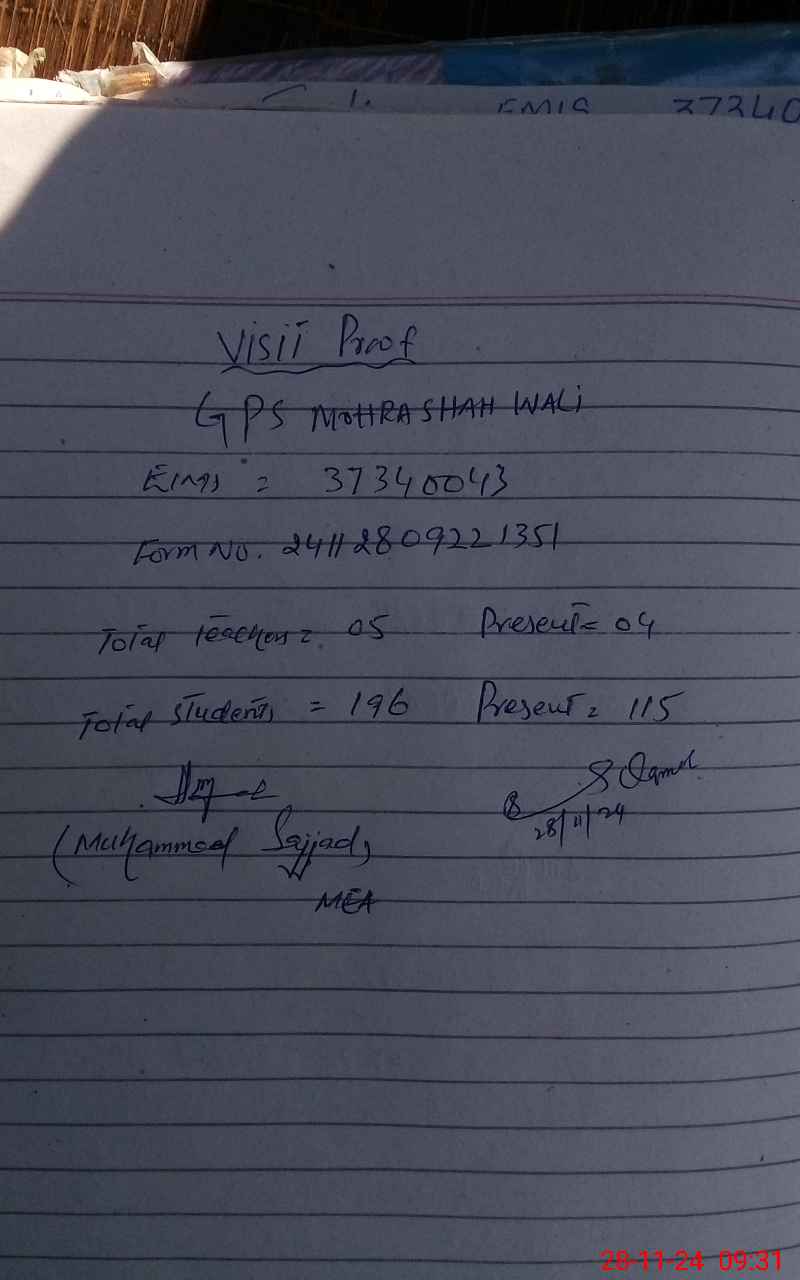 1. EMIS 37340
Visit Proof
GPS MOHRA SHAH WALI
EMIS = 37340043
Form No. 24112809221351
Total teachers = 05 Present = 04
Total students = 196 Present = 115
28/11/24
(Muhammad Sajjad)
MEA
28-11-24 09:31